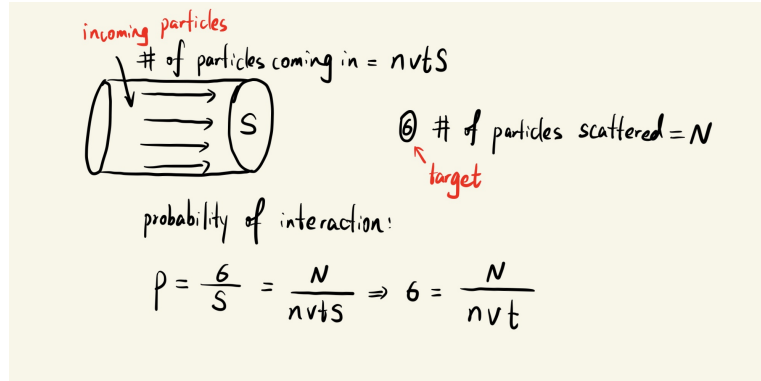 incoming particles
# of particles coming in = nvtS
S
σ # of particles scattered = N
target
probability of interaction:
P = σ/S = N/nvtS ⇒ σ = N/nvt